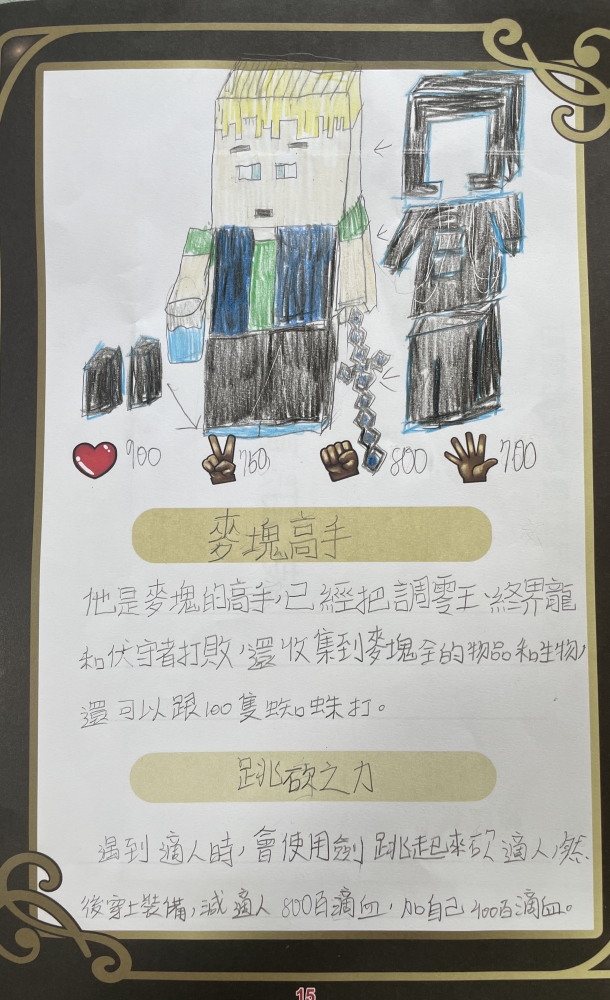 900 750 800 700
麥塊高手
他是麥塊的高手,已經把調零王、終界龍
和伏守者打敗,還收集到麥塊全的物品和生物,
還可以跟100隻蜘蛛打。
跳砍之力
遇到適人時,會使用劍跳起來砍適人,然
後穿上裝備,減適人800百滴血,加自己400百滴血。
15